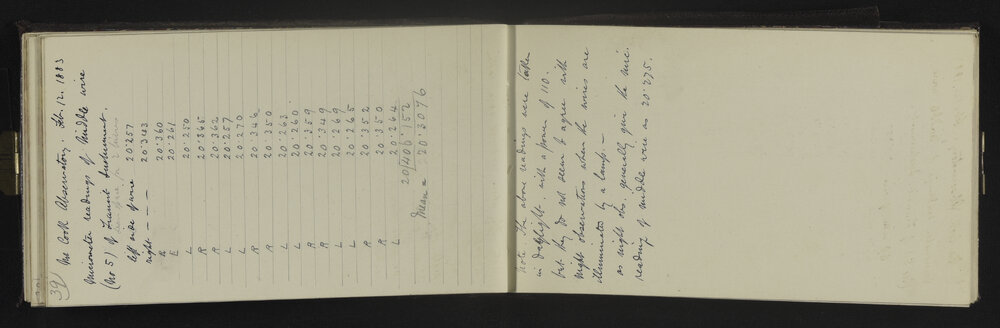 39) Mt Cook Observatory. Feb. 12. 1883
Micrometer readings of Middle wire
(No 5) of Transit Instrument.
left side of wire 20.257
right — — — 20.343
R 20.360
L 20.261
L 20.250
R 20.365
R 20.362
L 20.257
L 20.270
R 20.346
R 20.350
L 20.263
L 20.260
R 20.359
R 20.349
L 20.269
L 20.265
R 20.352
R 20.350
L 20.264
20/406.152
Mean = 20.3076
Note. The above readings were taken
in daylight with a power of 110.
but they do not seem to agree with
night observations when the wires are
illuminated by a lamp —
as night obs. generally give the mic.
reading of middle wire as 20.275.